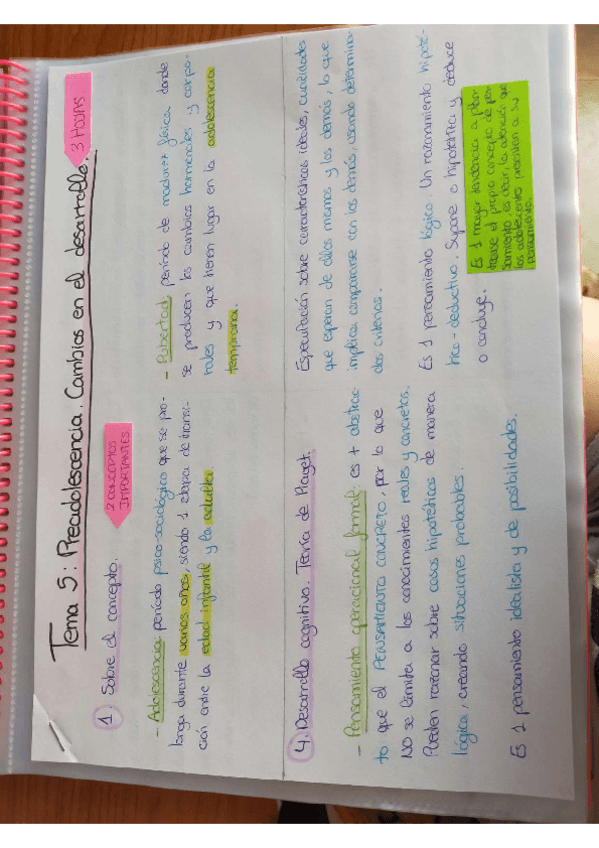 Tema 5: Preadolescencia. Cambios en el desarrollo.
3 HOJAS
1 Sobre el concepto.
2 CONCEPTOS
IMPORTANTES
- Adolescencia: período psico-sociológico que se pro-
longa durante varios años, siendo 1 etapa de transi-
ción entre la edad infantil y la adulta.
- Pubertad: período de madurez física donde
se producen los cambios hormonales y corpo-
rales y que tienen lugar en la adolescencia
temprana.
4. Desarrollo cognitivo. Teoría de Piaget.
- Pensamiento operacional formal: es + abstrac-
to que el PENSAMIENTO CONCRETO, por lo que
NO se limita a los conocimientos reales y concretos.
Pueden razonar sobre casos hipotéticos de manera
lógica, creando situaciones probables.
Es 1 pensamiento idealista y de posibilidades.
Especulación sobre características ideales, cualidades
que esperan de ellos mismos y los demás, lo que
implica compararse con los demás, usando determina-
dos criterios.
Es 1 pensamiento lógico. Un razonamiento hipoté-
tico-deductivo. Supone o hipotetiza y deduce
o concluye.
Es 1 mayor tendencia a plan-
tearse el propio concepto de pen-
samiento es decir, la atención que
los adolescentes prestan a su
pensamiento.